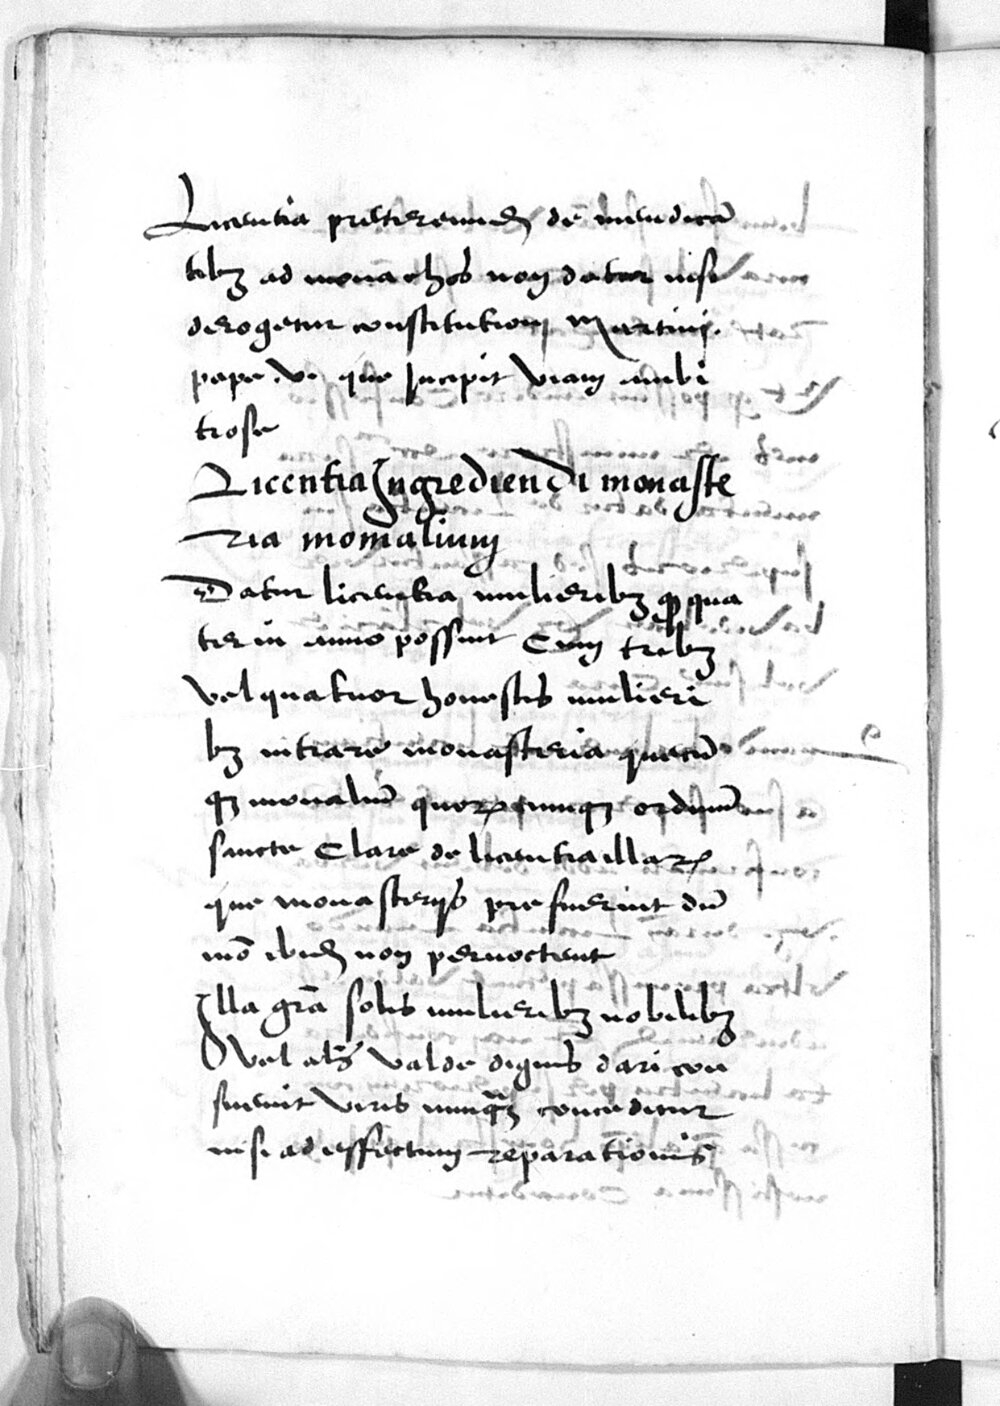 Licentia pretereundi de mendicā
tibꝫ ad monachos non datur nisi
derogetur constitutioni Martini
pape .v. que Incipit Viam ambi
tiose
Licentia Ingrediendi monaste
ria monialium
Datur licentia mulieribꝫ ꝙ qua
ter in anno possint Cum tribꝫ
vel quatuor honestis mulieri
bꝫ intrare monasteria quecū
qꝫ monaliū quoꝝcumqꝫ ordinū
sancte Clare de licentia illaꝝ
que monasterijs prefuerint dū
mō ibidē non pernoctent
Illa grā solis mulieribꝫ nobilibꝫ
vel alijs valde dignis dari con
sueuit viris nunqꝫ conceditur
nisi ad effectum reparationis